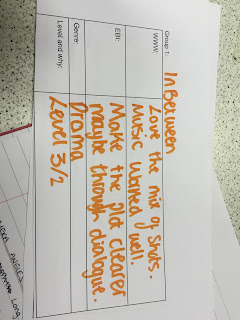 Group 1: InBetween
WWW: Love the mix of shots.
Music worked well.
EBI: Make the plot clearer
maybe through dialogue.
Genre: Drama
Level and why: Level 3/2
ANGLES
Long